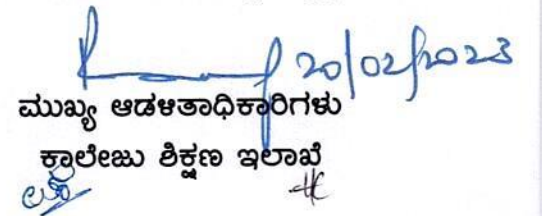 20/02/2023
ಮುಖ್ಯ ಆಡಳಿತಾಧಿಕಾರಿಗಳು
ಕಾಲೇಜು ಶಿಕ್ಷಣ ಇಲಾಖೆ